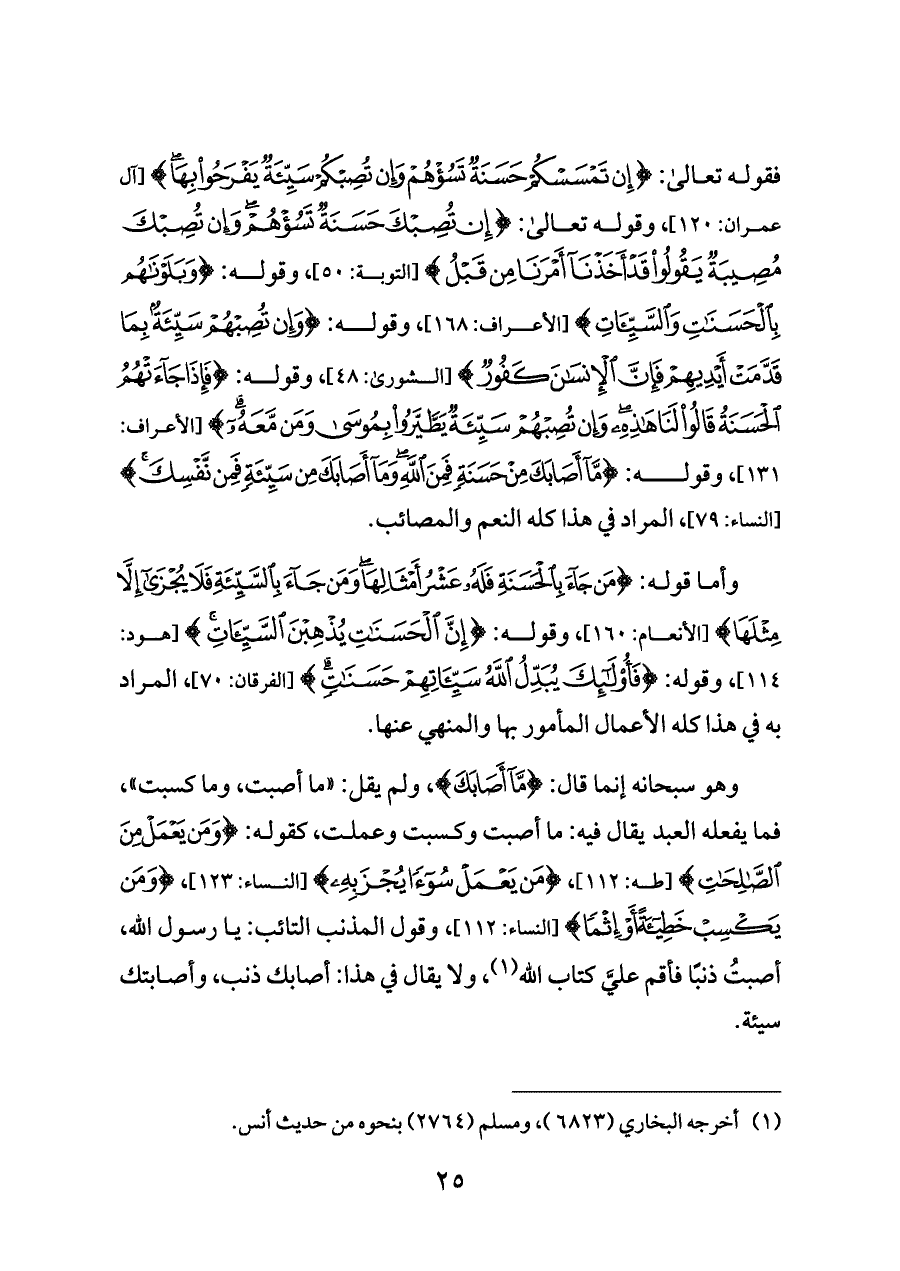 فقوله تعالىٰ: ﴿إِن تَمْسَسْكُمْ حَسَنَةٌ تَسُؤْهُمْ وَإِن تُصِبْكُمْ سَيِّئَةٌ يَفْرَحُوا۟ بِهَاۖ﴾ [آل
عمران: ١٢٠]، وقوله تعالىٰ: ﴿إِن تُصِبْكَ حَسَنَةٌ تَسُؤْهُمْۖ وَإِن تُصِبْكَ
مُصِيبَةٌ يَقُولُوا۟ قَدْ أَخَذْنَآ أَمْرَنَا مِن قَبْلُ﴾ [التوبة: ٥٠]، وقوله: ﴿وَبَلَوْنَٰهُم
بِٱلْحَسَنَٰتِ وَٱلسَّيِّـَٔاتِ﴾ [الأعراف: ١٦٨]، وقوله: ﴿وَإِن تُصِبْهُمْ سَيِّئَةٌۢ بِمَا
قَدَّمَتْ أَيْدِيهِمْ فَإِنَّ ٱلْإِنسَٰنَ كَفُورٌ﴾ [الشورىٰ: ٤٨]، وقوله: ﴿فَإِذَا جَآءَتْهُمُ
ٱلْحَسَنَةُ قَالُوا۟ لَنَا هَٰذِهِۦۖ وَإِن تُصِبْهُمْ سَيِّئَةٌ يَطَّيَّرُوا۟ بِمُوسَىٰ وَمَن مَّعَهُۥٓۗ﴾ [الأعراف:
١٣١]، وقوله: ﴿مَّآ أَصَابَكَ مِنْ حَسَنَةٍ فَمِنَ ٱللَّهِۖ وَمَآ أَصَابَكَ مِن سَيِّئَةٍ فَمِن نَّفْسِكَۚ﴾
[النساء: ٧٩]، المراد في هذا كله النعم والمصائب.
وأما قوله: ﴿مَن جَآءَ بِٱلْحَسَنَةِ فَلَهُۥ عَشْرُ أَمْثَالِهَاۖ وَمَن جَآءَ بِٱلسَّيِّئَةِ فَلَا يُجْزَىٰٓ إِلَّا
مِثْلَهَا﴾ [الأنعام: ١٦٠]، وقوله: ﴿إِنَّ ٱلْحَسَنَٰتِ يُذْهِبْنَ ٱلسَّيِّـَٔاتِۚ﴾ [هود:
١١٤]، وقوله: ﴿فَأُو۟لَٰٓئِكَ يُبَدِّلُ ٱللَّهُ سَيِّـَٔاتِهِمْ حَسَنَٰتٍۗ﴾ [الفرقان: ٧٠]، المراد
به في هذا كله الأعمال المأمور بها والمنهي عنها.
وهو سبحانه إنما قال: ﴿مَّآ أَصَابَكَ﴾، ولم يقل: «ما أصبت، وما كسبت»،
فما يفعله العبد يقال فيه: ما أصبت وكسبت وعملت، كقوله: ﴿وَمَن يَعْمَلْ مِنَ
ٱلصَّٰلِحَٰتِ﴾ [طه: ١١٢]، ﴿مَن يَعْمَلْ سُوٓءًا يُجْزَ بِهِۦ﴾ [النساء: ١٢٣]، ﴿وَمَن
يَكْسِبْ خَطِيٓـَٔةً أَوْ إِثْمًا﴾ [النساء: ١١٢]، وقول المذنب التائب: يا رسول الله،
أصبتُ ذنبًا فأقم عليَّ كتاب الله(١)، ولا يقال في هذا: أصابك ذنب، وأصابتك
سيئة.
(١) أخرجه البخاري (٦٨٢٣)، ومسلم (٢٧٦٤) بنحوه من حديث أنس.
٢٥